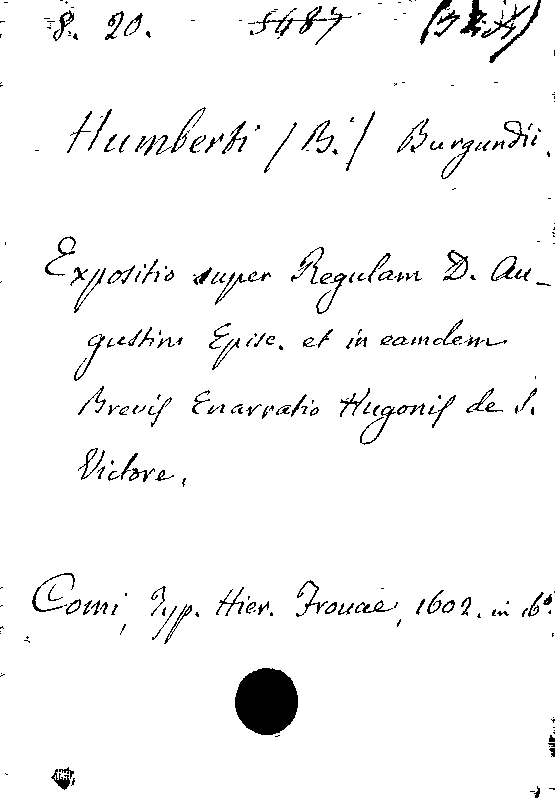 8. 20. 5487
Humberti / B. / Burgundii.
Expositio super Regulam D. Au-
gustini Episc. et in eamdem
Brevis Enarratio Hugonis de S.
Victore.
Comi, Typ. Hier. Frouae, 1602. in 16°.